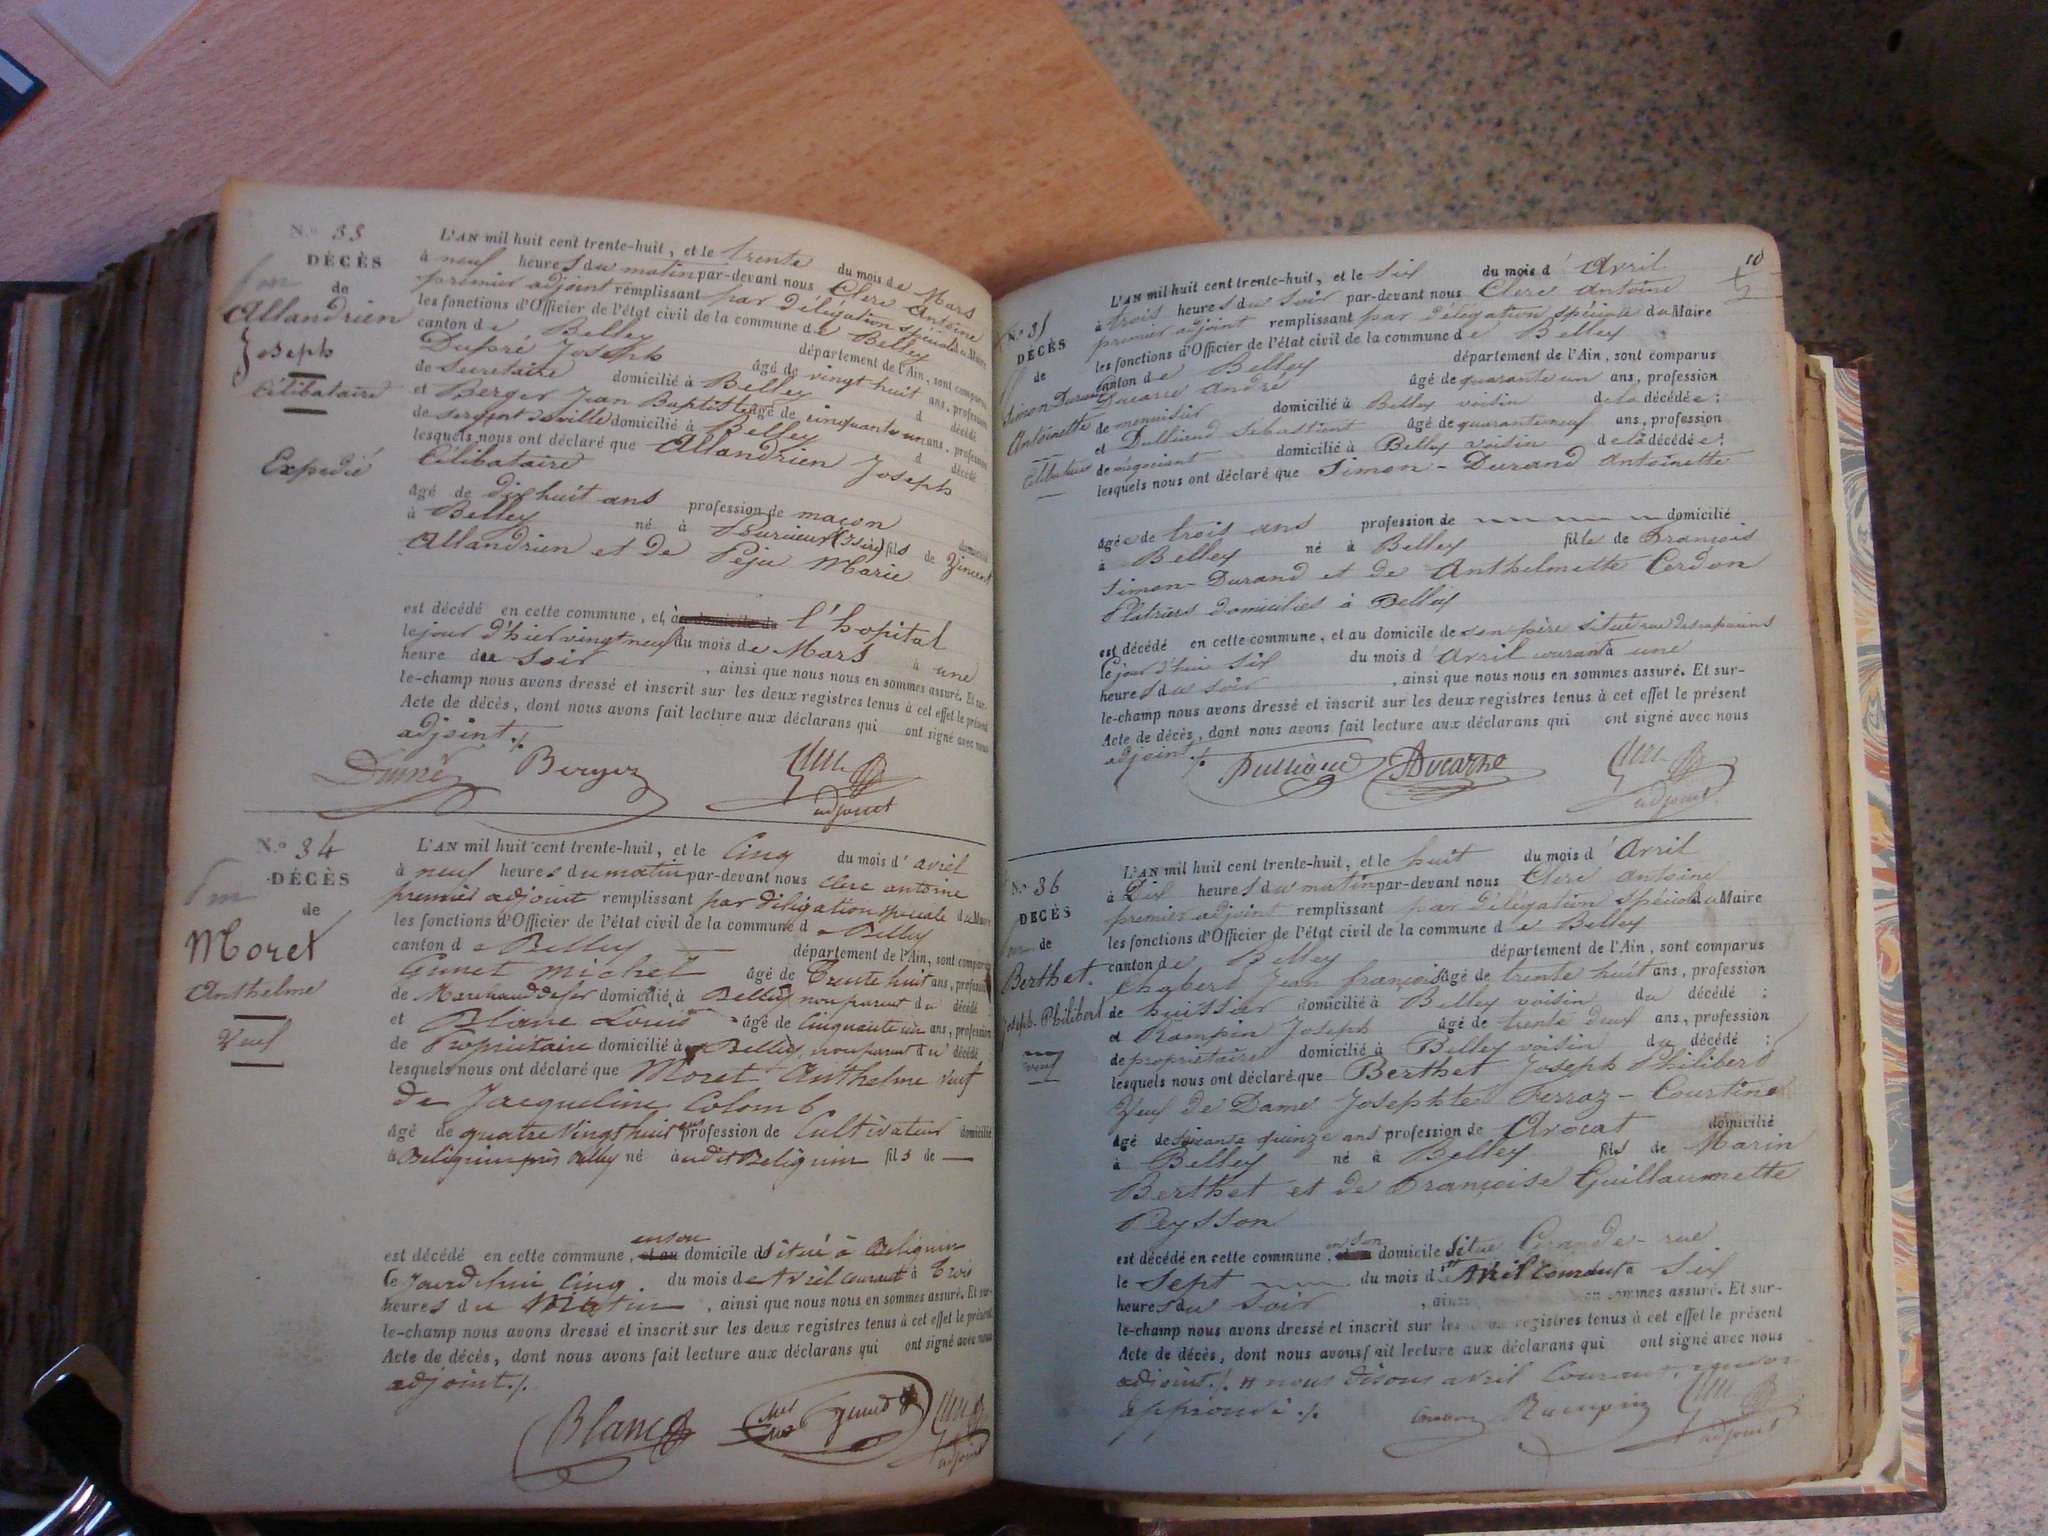 N.° 33
DÉCÈS
de
Allandrien
Joseph
Célibataire
Expedié
L'AN mil huit cent trente-huit, et le trente du mois de Mars
à neuf heures du matin par-devant nous Clerc Antoine
premier adjoint remplissant par délégation spéciale du Maire
les fonctions d'Officier de l'état civil de la commune de Belley
canton de Belley département de l'Ain, sont comparus
Dupré Joseph âgé de vingt huit ans, profession
de Secretaire domicilié à Belley d décédé
et Berger Jean Baptiste âgé de cinquante un ans, profession
de sergent de ville domicilié à Belley d décédé
lesquels nous ont déclaré que Allandrien Joseph
Célibataire
âgé de dix huit ans profession de maçon domicilié
à Belley né à (Isère) fils de Vincent
Allandrien et de Péju Marie
est décédé en cette commune, et à au domicile de l'hopital
le jour d'hier vingt neuf du mois de Mars à une
heure du soir , ainsi que nous nous en sommes assuré. Et sur-
le-champ nous avons dressé et inscrit sur les deux registres tenus à cet effet le présent
Acte de décès, dont nous avons fait lecture aux déclarans qui ont signé avec nous
adjoint ./.
Berger Clerc
adjoint
N.° 34
DÉCÈS
de
Moret
Anthelme
Veuf
L'AN mil huit cent trente-huit, et le Cinq du mois d'avril
à neuf heures du matin par-devant nous Clerc antoine
premier adjoint remplissant par délégation spéciale du Maire
les fonctions d'Officier de l'état civil de la commune de Belley
canton de Belley département de l'Ain, sont comparus
Michel âgé de Trente huit ans, profession
de Marchand de fer domicilié à Belley non parent du décédé
et Blanc Louis âgé de Cinquante un ans, profession
de Propriétaire domicilié à Belley, non parent du décédé
lesquels nous ont déclaré que Moret Anthelme veuf
de Jacqueline Colomb
âgé de quatre vingt huit ans profession de Cultivateur domicilié
à Beliguin près Belley né à udit Beliguin fils de —
est décédé en cette commune, en son et au domicile situé à Beliguin
le jourd'hui Cinq du mois d'Avril courant à Trois
heures du Matin , ainsi que nous nous en sommes assuré. Et sur-
le-champ nous avons dressé et inscrit sur les deux registres tenus à cet effet le présent
Acte de décès, dont nous avons fait lecture aux déclarans qui ont signé avec nous
adjoint ./.
Blanc Clerc
adjoint
10
N.° 35
DÉCÈS
de
Simon Durand
Antoinette
Célibataire
L'AN mil huit cent trente-huit, et le six du mois d'Avril
à trois heures du soir par-devant nous Clerc Antoine
premier adjoint remplissant par délégation spéciale du Maire
les fonctions d'Officier de l'état civil de la commune de Belley
canton de Belley département de l'Ain, sont comparus
Ducarre André âgé de quarante un ans, profession
de menuisier domicilié à Belley voisin de la décédée;
et Dulliand Sebastient âgé de quarante neuf ans, profession
de négociant domicilié à Belley voisin de la décédée;
lesquels nous ont déclaré que Simon-Durand Antoinette
agée de trois ans profession de domicilié
à Belley né à Belley fille de François
Simon-Durand et de Anthelmette Cerdon
Platriers domiciliés à Belley
est décédé en cette commune, et au domicile de son père situé rue des capucins
le jour d'hui six du mois d'Avril courant à une
heures du soir , ainsi que nous nous en sommes assuré. Et sur-
le-champ nous avons dressé et inscrit sur les deux registres tenus à cet effet le présent
Acte de décès, dont nous avons fait lecture aux déclarans qui ont signé avec nous
adjoint ./.
Dulliand Ducarre Clerc
adjoint
N.° 36
DÉCÈS
de
Berthet
Joseph-Philibert
veuf
L'AN mil huit cent trente-huit, et le huit du mois d'Avril
à Dix heures du matin par-devant nous Clerc Antoine
premier adjoint remplissant par délégation spéciale du Maire
les fonctions d'Officier de l'état civil de la commune de Belley
canton de Belley département de l'Ain, sont comparus
Chabert Jean françois âgé de trente huit ans, profession
de huissier domicilié à Belley voisin du décédé :
et Rampin Joseph âgé de trente deux ans, profession
de propriétaire domicilié à Belley voisin du décédé :
lesquels nous ont déclaré que Berthet Joseph Philibert
Veuf de Dame Josephte Ferraz-Courtine
âgé de soixante quinze ans profession de Avocat domicilié
à Belley né à Belley fils de Marin
Berthet et de Françoise Guillaumette
Peysson
est décédé en cette commune, en son domicile situé Grande-rue
le Sept du mois d'Avril Courant à six
heures du soir , ainsi en sommes assuré. Et sur-
le-champ nous avons dressé et inscrit sur les deux registres tenus à cet effet le présent
Acte de décès, dont nous avons fait lecture aux déclarans qui ont signé avec nous
adjoint ./. nous disons avril Courant,
approuvé ./.
Rampin Clerc
adjoint